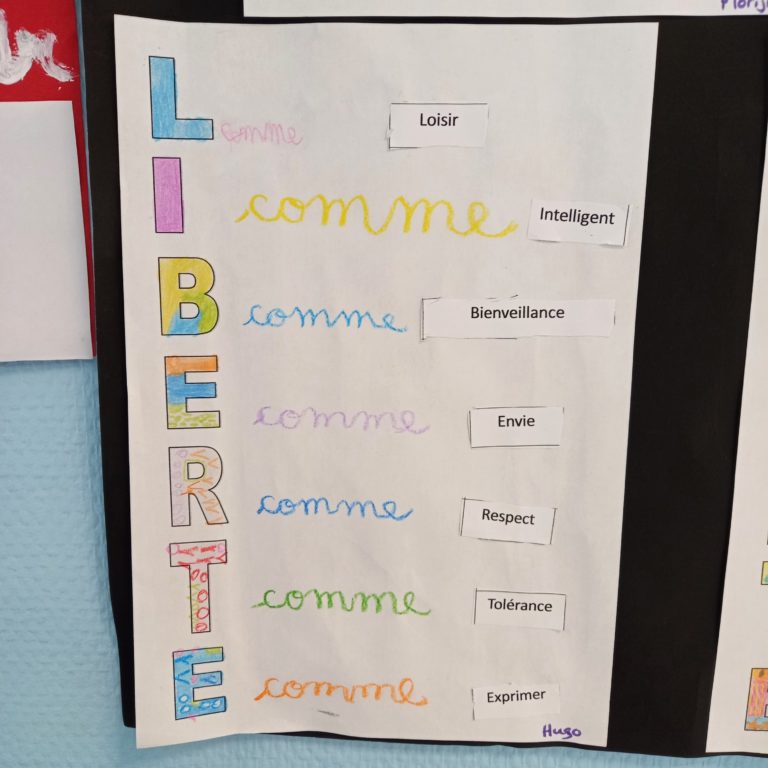 L comme Loisir
I comme Intelligent
B comme Bienveillance
E comme Envie
R comme Respect
T comme Tolérance
E comme Exprimer
Hugo